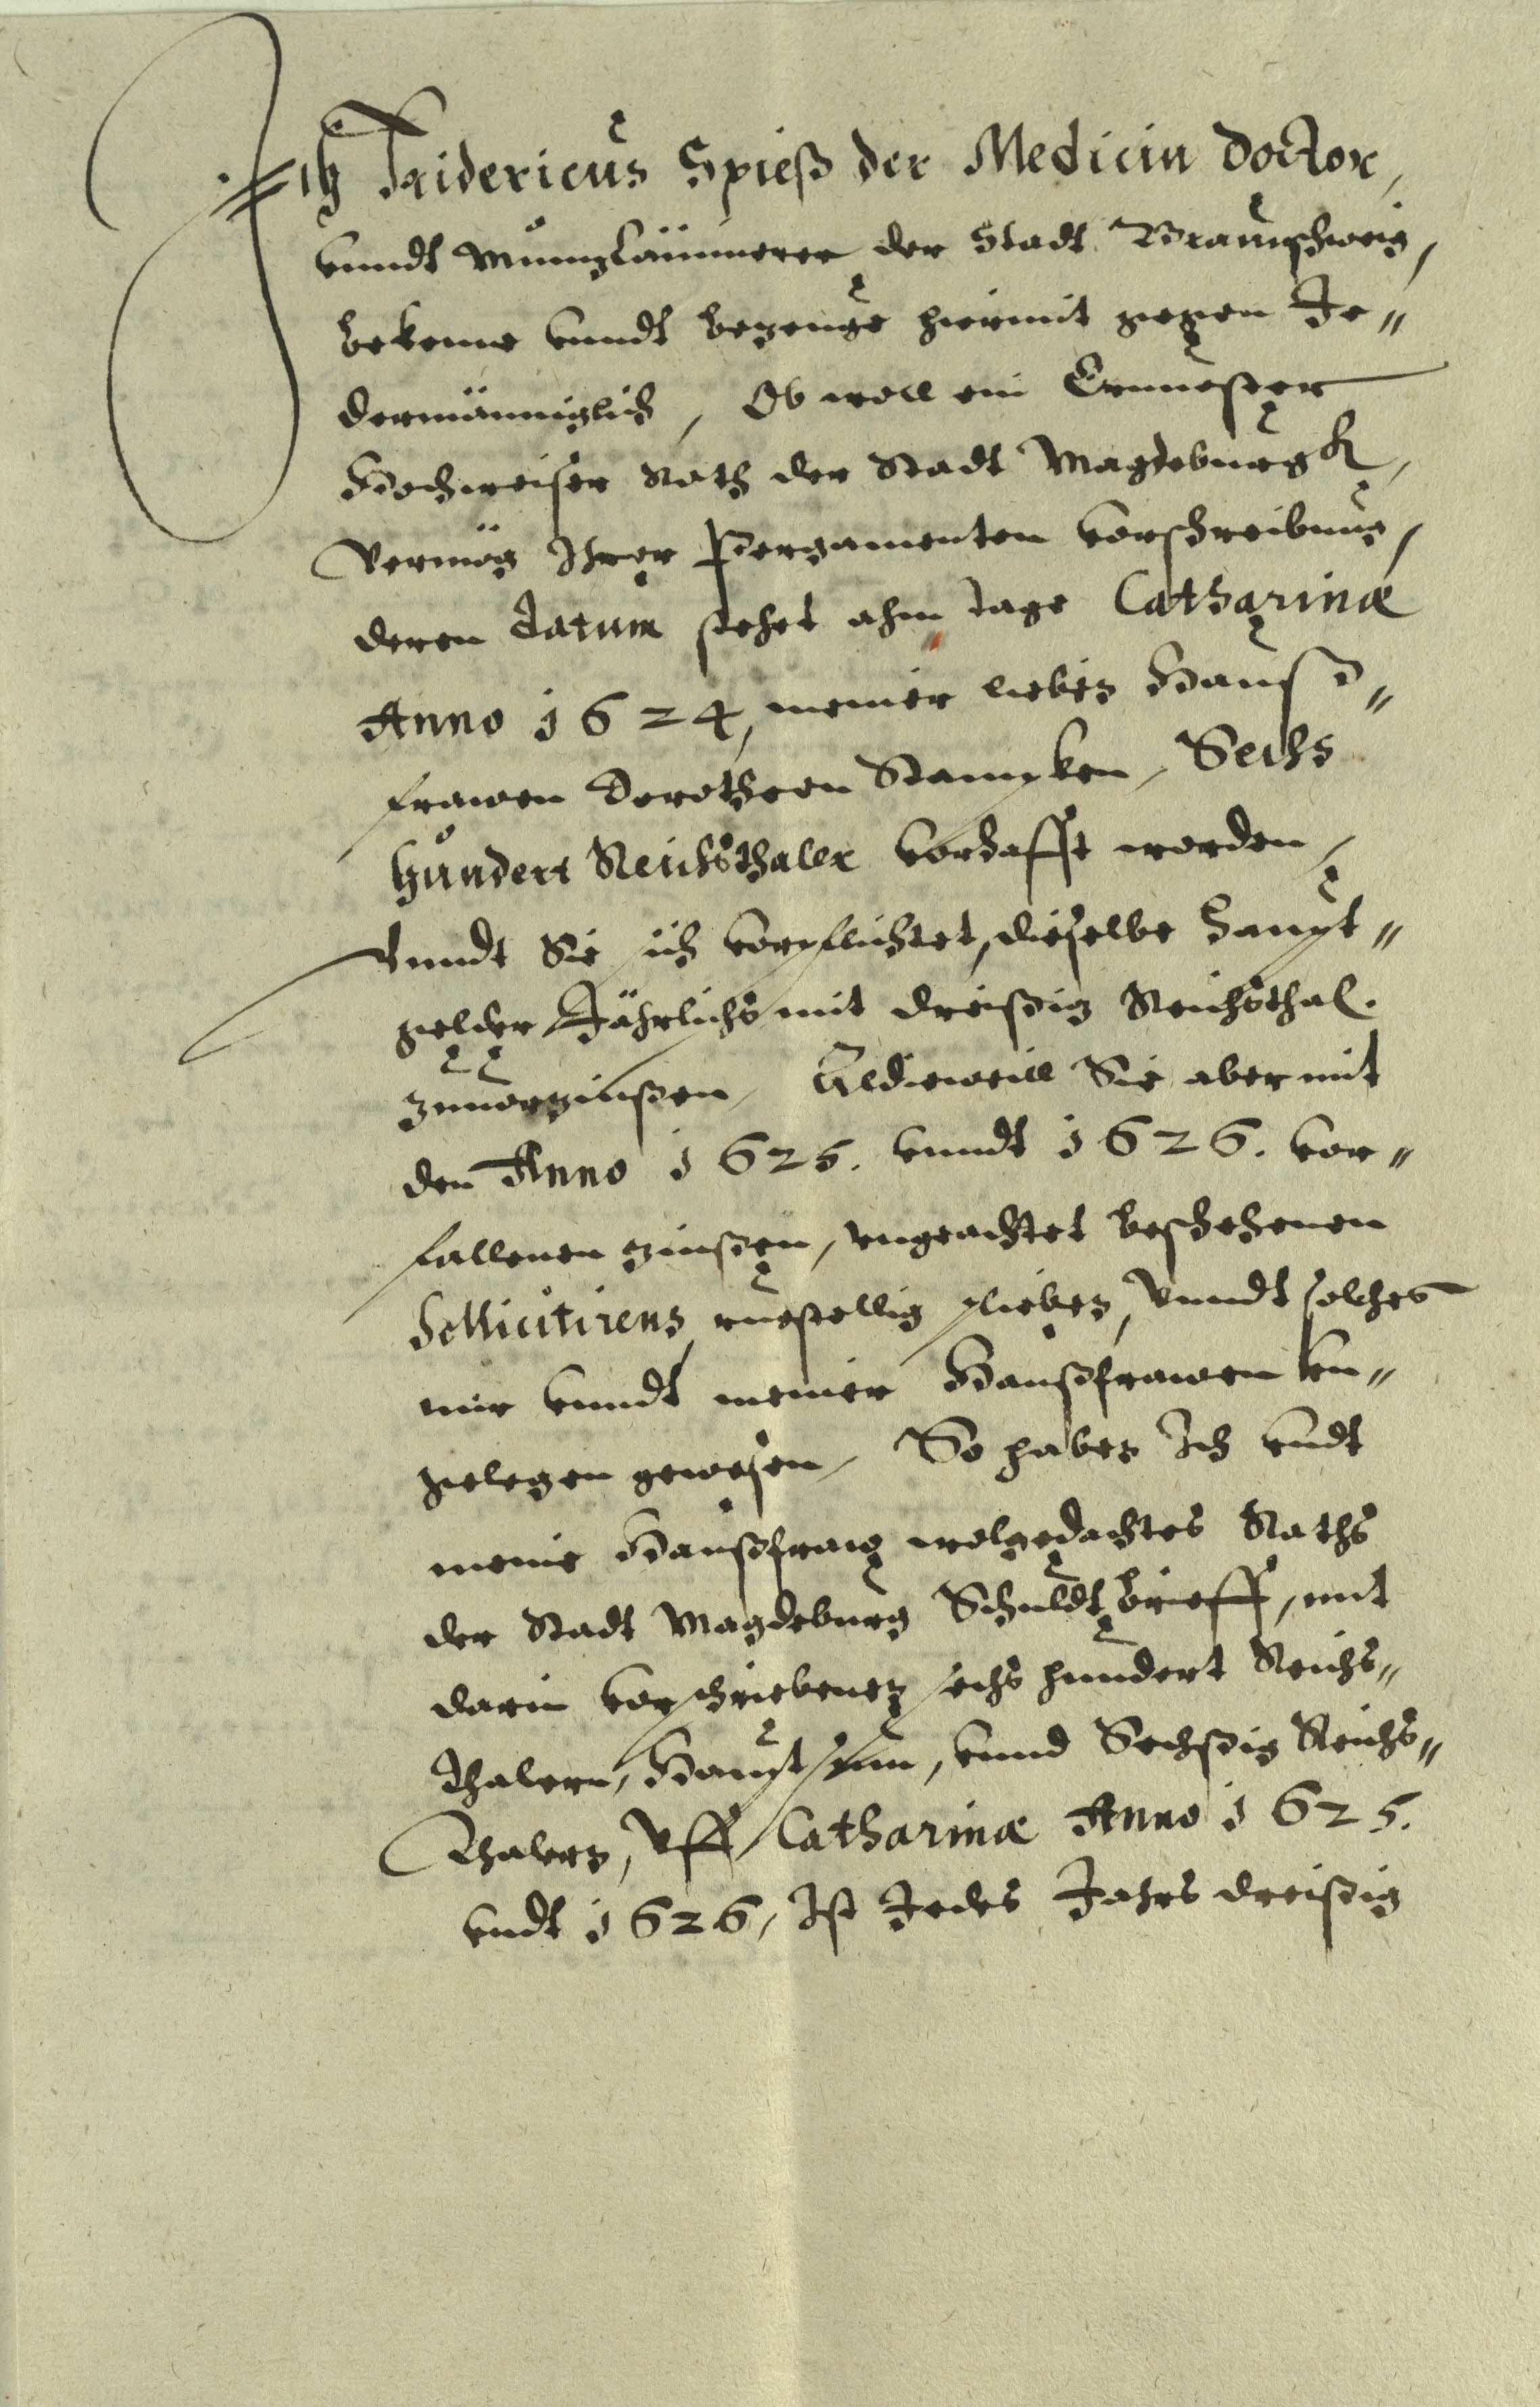 Ich Fridericus Spieß der Medicin Doctor,
vnndt Müntzkämmerer der Stadt Braunschweig,
bekenne vnndt bezeuge hiermit gegen Je-
dermänniglich, Ob woll ein Ernuester
Hochweiser Rath der Stadt Magdeburgk,
Vermög Ihrer Pergamenten vorschreibung,
deren datum stehet ahm tage Catharinæ
Anno 1624, meiner lieben Hauß-
frawen Dorotheen Stampken, Sechs
hundert Reichsthaler vorhafft worden,
Vnndt Sie sich vorpflichtet, dieselbe Haupt-
gelder Jährlichs mit dreißig Reichsthal.
zuuorzinßen, Aldieweill Sie aber mit
den Anno 1625. vnndt 1626. vor-
fallenen zinßen, vngeachtet beschehenen
Sollicitirens, ruestellig plieben, Vnndt solches
mir vnndt meiner Haußfrawen vn-
gelegen gewesen, So haben Ich vndt
meine Haußfraw wolgedachtes Raths
der Stadt Magdeburg Schuldtbrieff, mit
darin vorschriebenen sechs hundert Reichs-
thalern, Hauptsum, vnnd Sechßig Reichs-
Thalern, Vff Catharinæ Anno 1625.
vndt 1626, Ist Jedes Jahrs dreißig